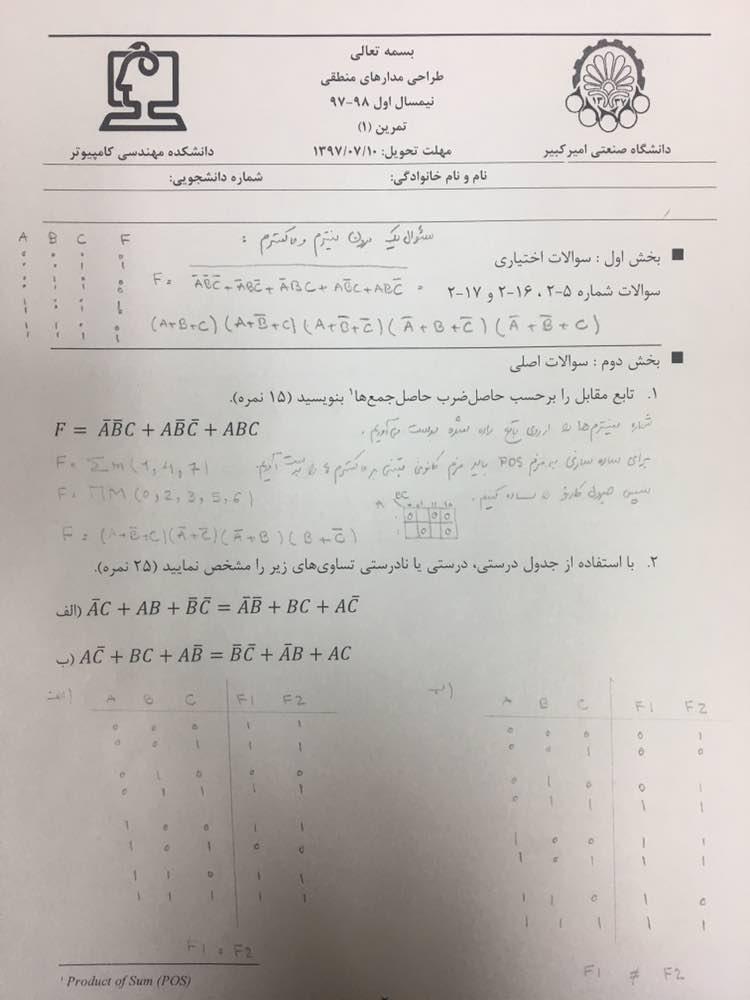 بسمه تعالی
طراحی مدارهای منطقی
نیمسال اول ۹۸-۹۷
تمرین (۱)
دانشگاه صنعتی امیرکبیر
مهلت تحویل: ۱۳۹۷/۰۷/۱۰
دانشکده مهندسی کامپیوتر
نام و نام خانوادگی:
شماره دانشجویی:
A B C F
سئوال یک بدون مینترم و ماکسترم :
■ بخش اول : سوالات اختیاری
سوالات شماره ۵-۲ ، ۱۶-۲ و ۱۷-۲
F = A̅B̅C̅ + A̅BC̅ + A̅BC + AB̅C + ABC̅ =
(A+B+C) (A+B̅+C) (A+B̅+C̅) (A̅+B+C̅) (A̅+B̅+C)
■ بخش دوم : سوالات اصلی
۱. تابع مقابل را برحسب حاصل‌ضرب حاصل‌جمع‌ها¹ بنویسید (۱۵ نمره).
F = A̅B̅C + AB̅C̅ + ABC
شماره مینترم‌ها را از روی تابع داده شده بدست می‌آوریم.
F = Σm(1,4,7)
برای ساده سازی به فرم POS باید فرم کانونی مبتنی بر ماکسترم را بدست آوریم.
F = ΠM(0,2,3,5,6)
سپس جدول کارنو را ساده کنیم.
A BC 00 01 11 10
0 0 0
0 0
F = (A+B̅+C)(A̅+C̅)(A̅+B)(B+C̅)
۲. با استفاده از جدول درستی، درستی یا نادرستی تساوی‌های زیر را مشخص نمایید (۲۵ نمره).
الف) A̅C + AB + B̅C̅ = A̅B̅ + BC + AC̅
ب) AC̅ + BC + AB̅ = B̅C̅ + A̅B + AC
الف)
A B C F1 F2
0 0 0 1 1
0 0 1 1 1
0 1 0 0 0
0 1 1 1 1
1 0 0 1 1
1 0 1 0 0
1 1 0 1 1
1 1 1 1 1
F1 = F2
ب)
A B C F1 F2
0 0 0 0 1
0 0 1 0 0
0 1 0 0 1
0 1 1 1 1
1 0 0 1 1
1 0 1 1 1
1 1 0 1 0
1 1 1 1 1
F1 ≠ F2
¹ Product of Sum (POS)